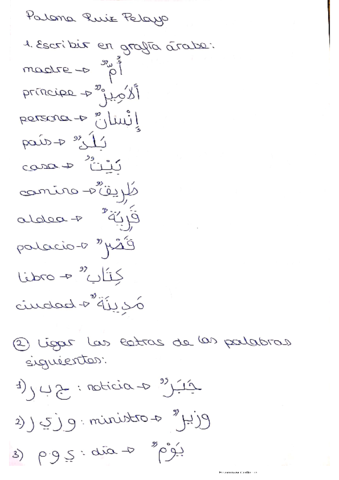 Paloma Ruiz Pelayo
1. Escribir en grafía árabe:
madre → أُمٌّ
príncipe → أَلأَمِيرٌ
persona → إِنْسَانٌ
país → بَلَدٌ
casa → بَيْتٌ
camino → طَرِيقٌ
aldea → قَرِيَةٌ
palacio → قَصْرٌ
libro → كِتَابٌ
ciudad → مَدِينَةٌ
2 Ligar las letras de las palabras
siguientes:
1) ج ب ر : noticia → جَبَرٌ
2) و ز ي ر : ministro → وزيرٌ
3) ي و م : día → يَوْمٌ